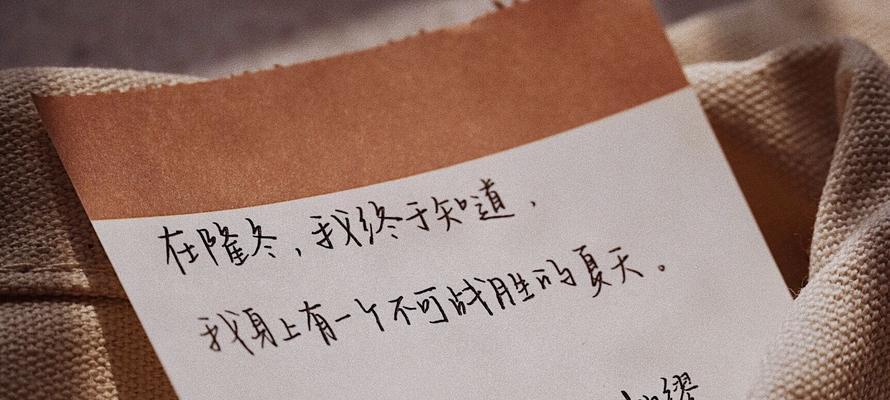 在隆冬，我终于知道，
我身上有一个不可战胜的夏天。
缪